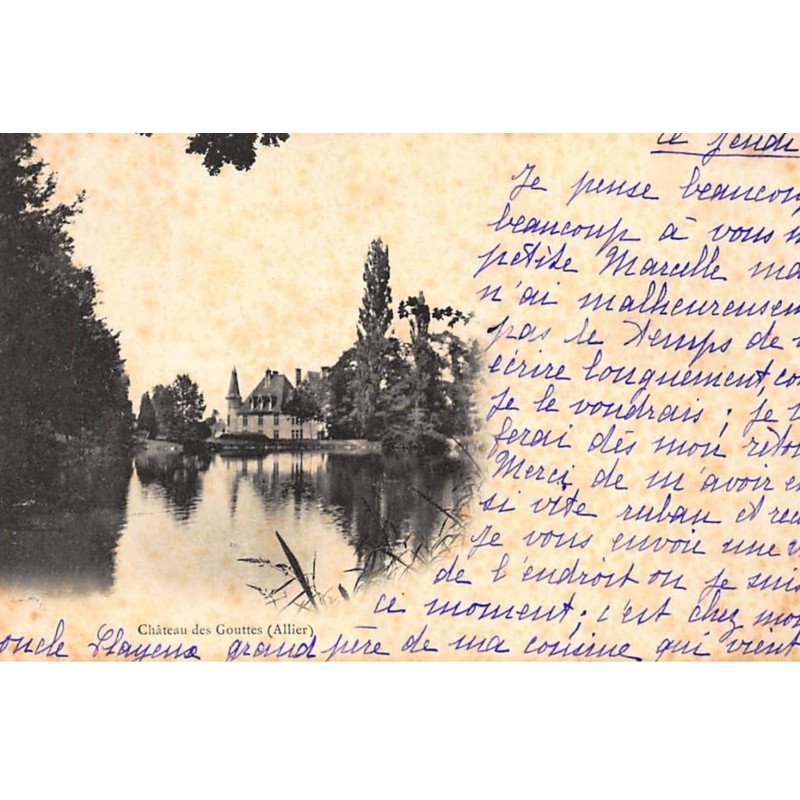 ce jeudi
Je pense beaucoup
beaucoup à vous
petite Marcelle
n'ai malheureusem
pas le temps de
écrire longuement, co
je le voudrais ; je
ferai dès mon reto
Merci de m'avoir
si vite ruban et
Je vous envoie une
de l'endroit où je suis
ce moment ; c'est chez mon
oncle grand père de ma cousine qui vient
Château des Gouttes (Allier)